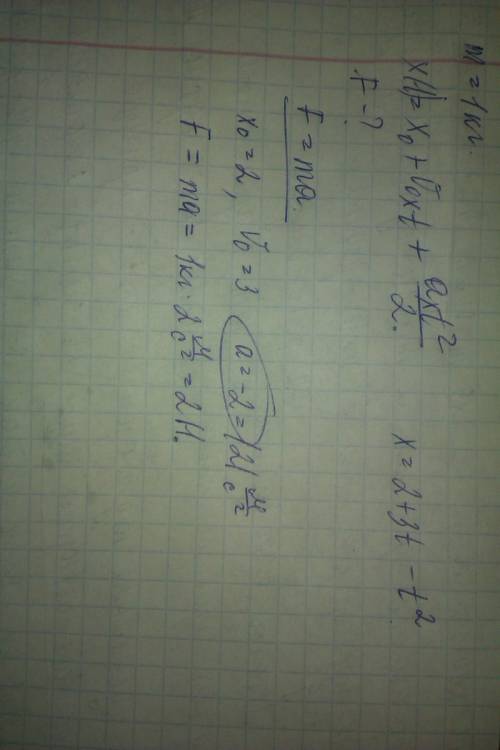 m = 1кг.
x(t) = x₀ + v₀xt + axt²/2. x = 2+3t - t²
F - ?
F = ma
x₀ = 2, v₀ = 3 a = -2 = |2| м/с²
F = ma = 1кг · 2 м/с² = 2Н.